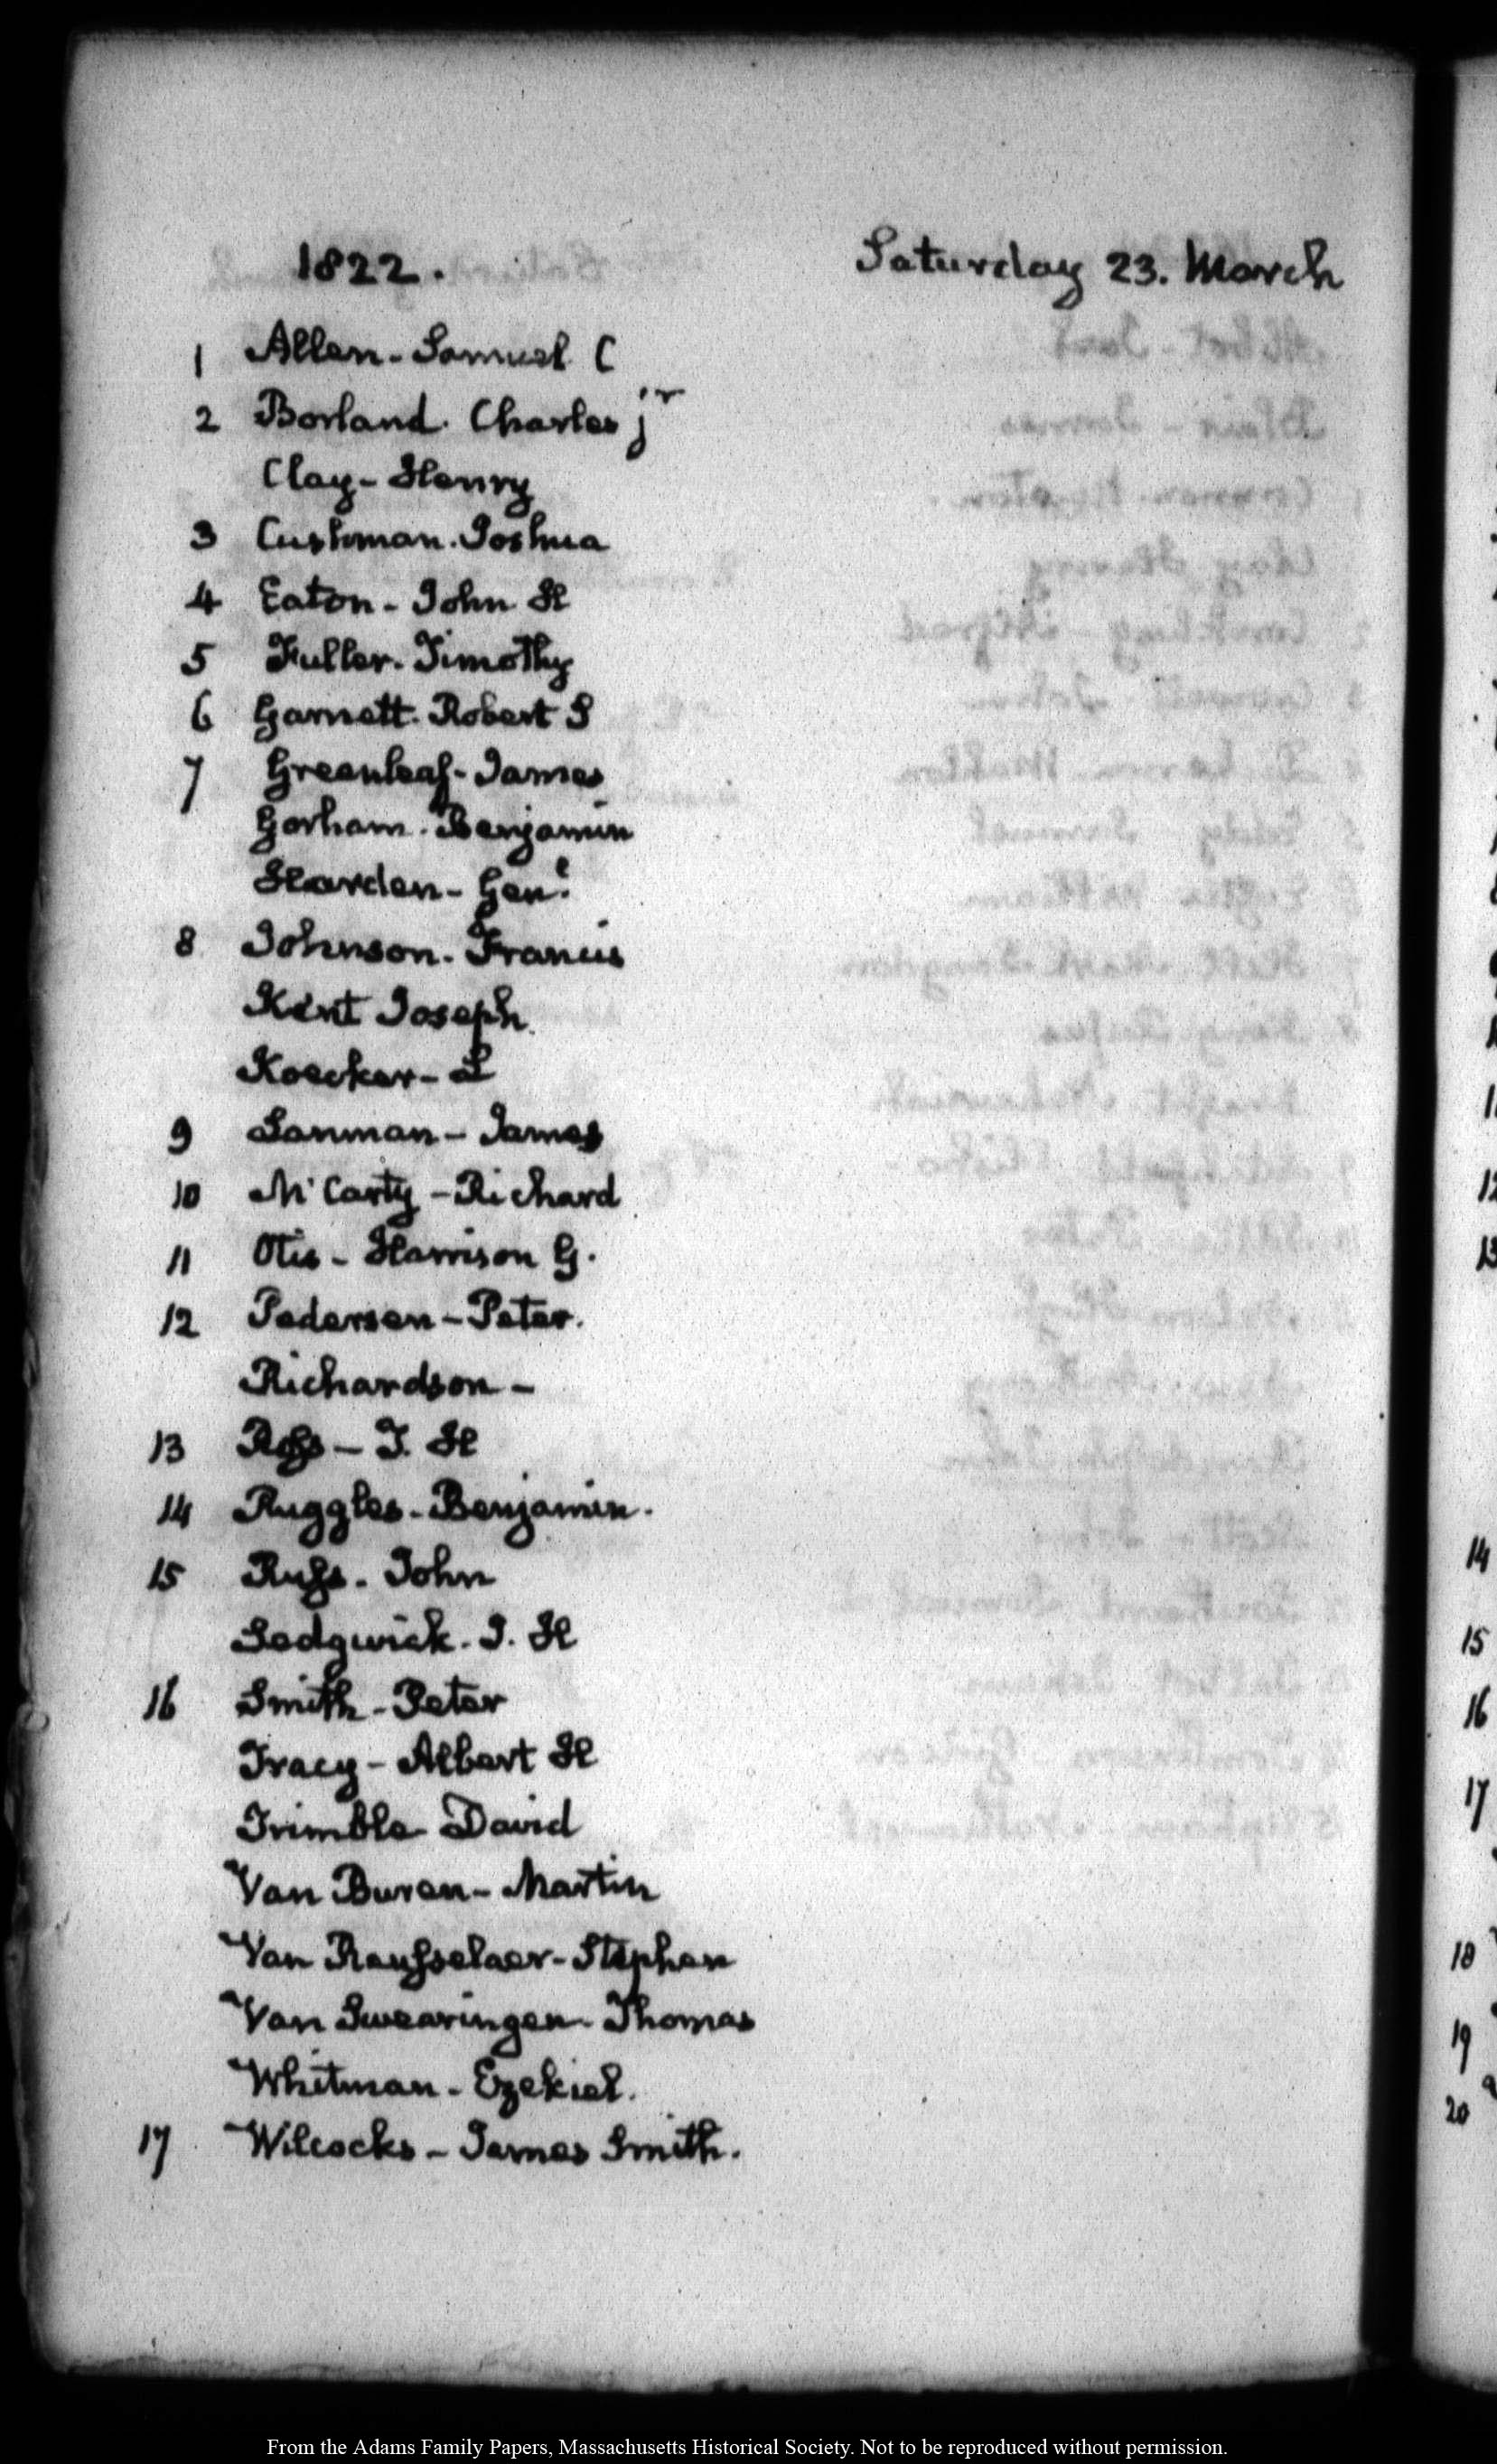 1822. Saturday 23. March
1 Allen - Samuel C
2 Borland. Charles jr
Clay - Henry
3 Cushman. Joshua
4 Eaton - John H
5 Fuller. Timothy
6 Garnett. Robert S
7 Greenleaf - James
Gorham. Benjamin
Harden - Genl.
8 Johnson. Francis
Kent Joseph
Koecker - L
9 Lanman - James
10 McCarty - Richard
11 Otis - Harrison G.
12 Pedersen - Peter.
Richardson -
13 Ross - T. H
14 Ruggles - Benjamin.
15 Russ. John
Sedgwick. J. H
16 Smith - Peter
Tracy - Albert H
Trimble David
Van Buren - Martin
Van Rensselaer - Stephen
Van Swearingen - Thomas
Whitman - Ezekiel.
17 Wilcocks - James Smith.
14
15
16
17
18
19
20
From the Adams Family Papers, Massachusetts Historical Society. Not to be reproduced without permission.